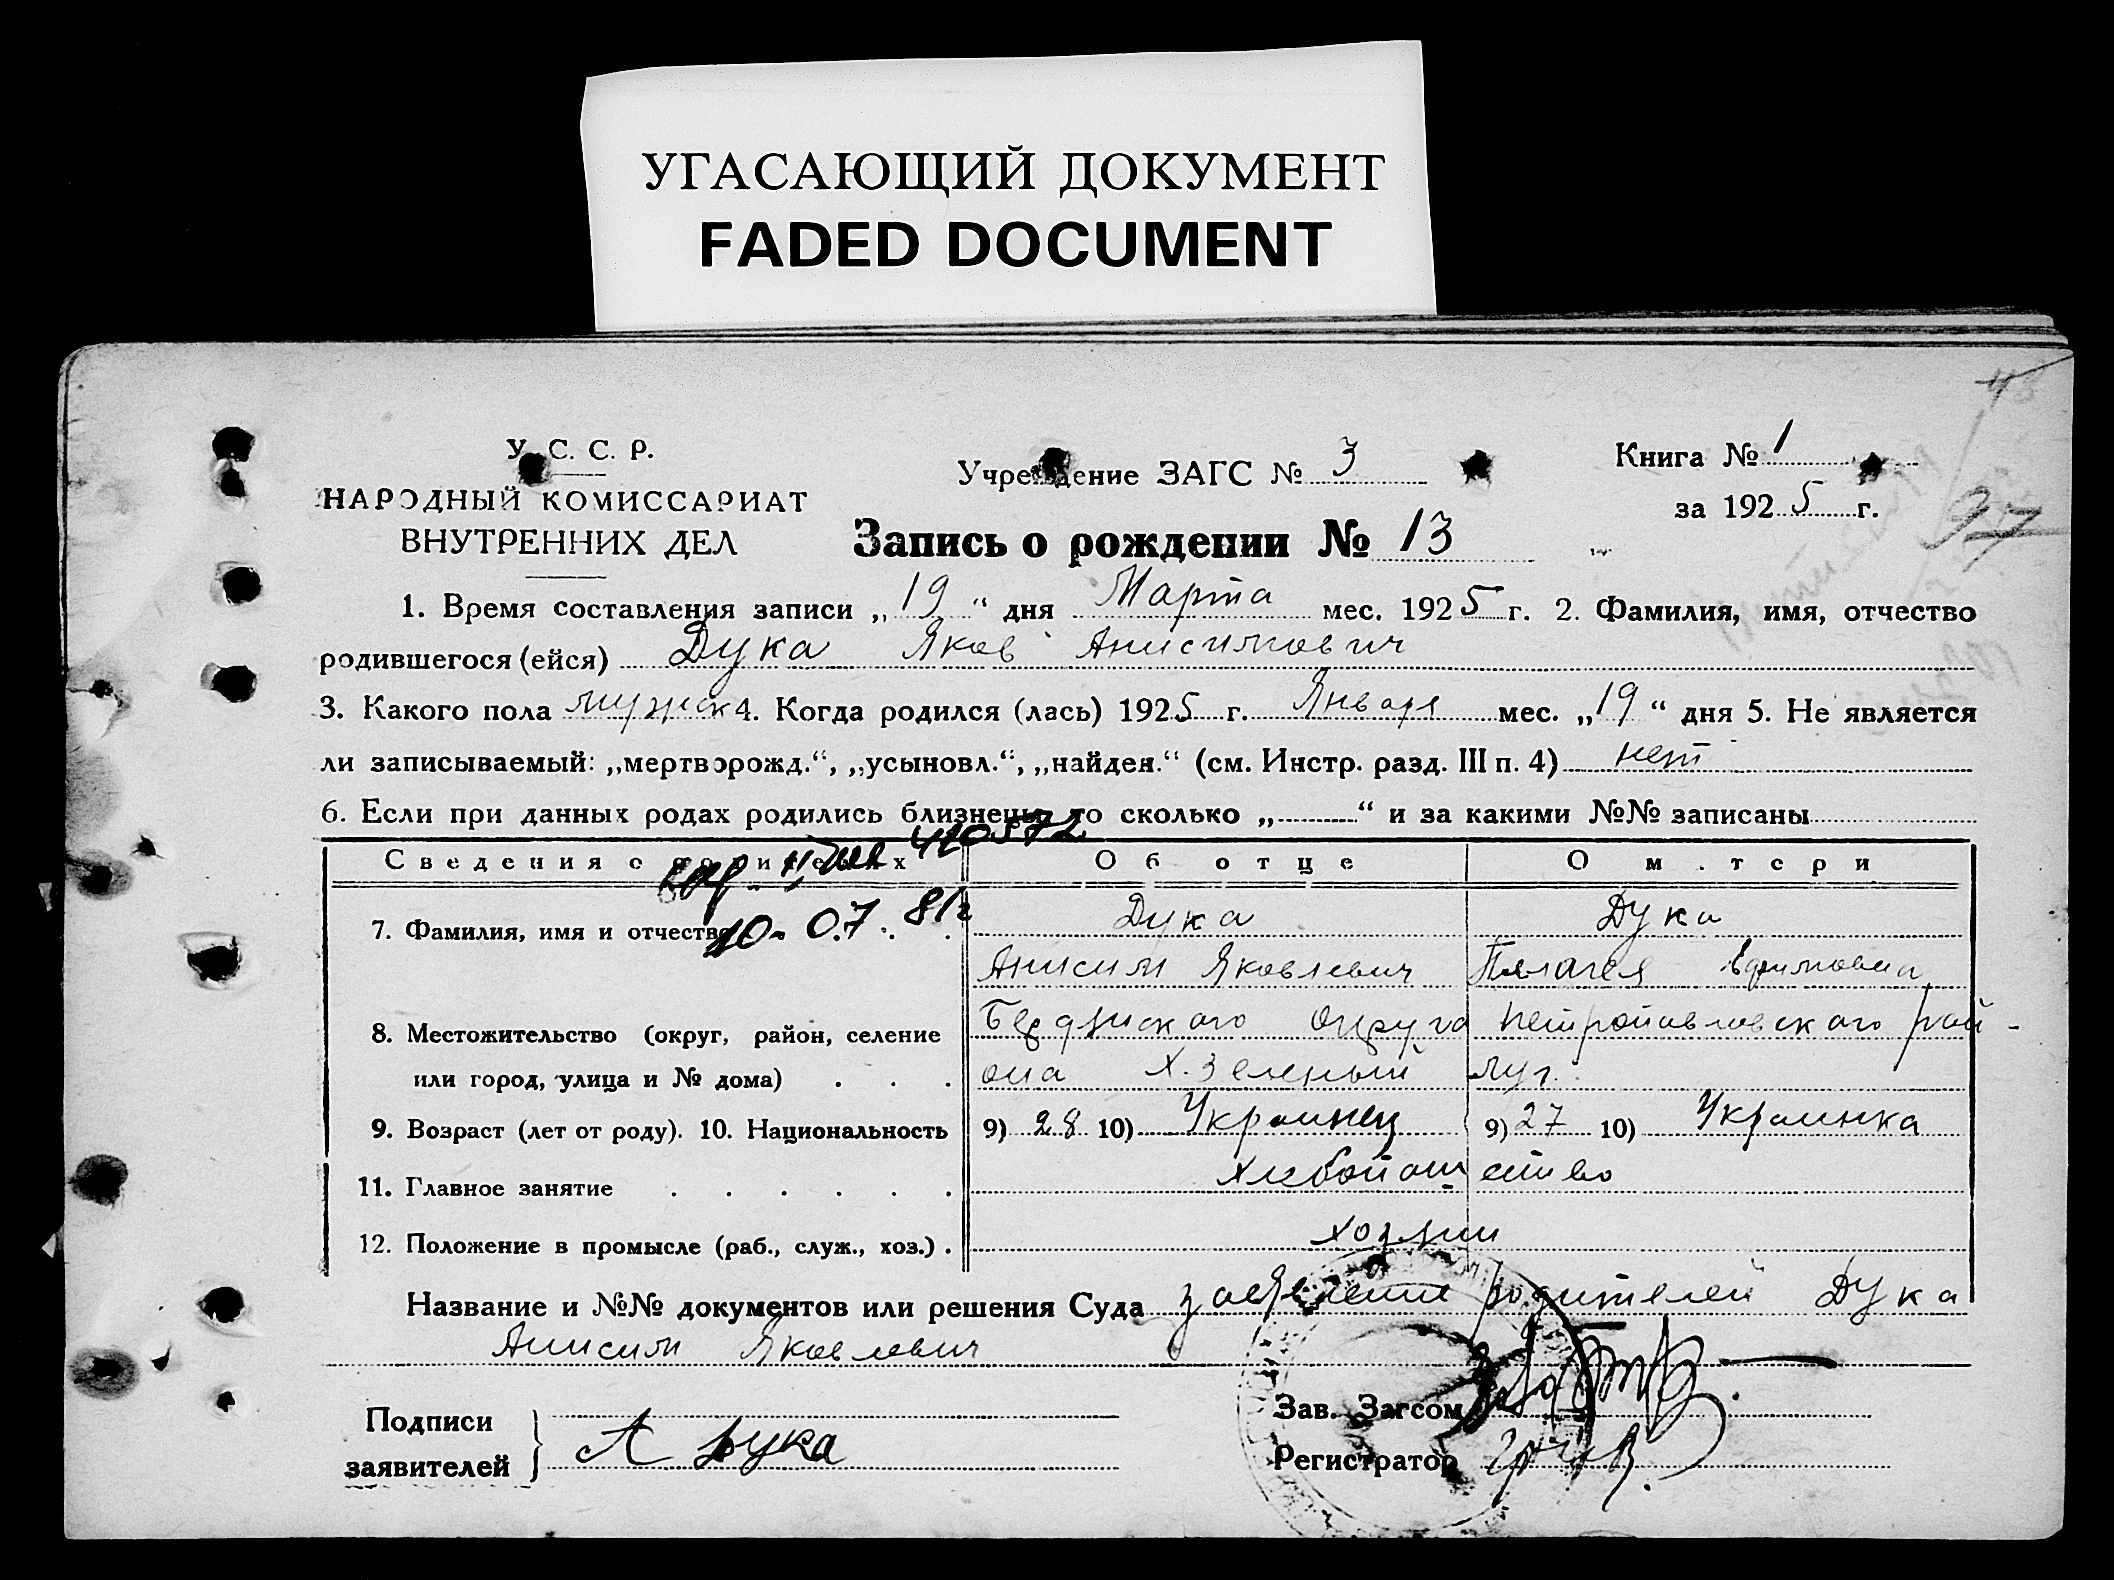 УГАСАЮЩИЙ ДОКУМЕНТ
FADED DOCUMENT
У. С. С. Р.
НАРОДНЫЙ КОМИССАРИАТ
ВНУТРЕННИХ ДЕЛ
Учреждение ЗАГС № 3
Книга № 1
за 1925 г.
97
Запись о рождении № 13
1. Время составления записи „19“ дня Марта мес. 1925 г. 2. Фамилия, имя, отчество
родившегося (ейся) Дука Яков Анисимович
3. Какого пола мужск 4. Когда родился (лась) 1925 г. Января мес. „19“ дня 5. Не является
ли записываемый: „мертворожд.“, „усыновл.“, „найден.“ (см. Инстр. разд. III п. 4) нет
6. Если при данных родах родились близнецы, то сколько „.........“ и за какими №№ записаны
410572
Сведения о родителях Об отце О матери
10-07.81г
7. Фамилия, имя и отчество Дука Дука
Анисим Яковлевич Пелагея Ефимовна
8. Местожительство (округ, район, селение округа Петропавловского рай-
или город, улица и № дома) . . . она Х. Зеленый луг.
9. Возраст (лет от роду). 10. Национальность 9) 28 10) Украинец 9) 27 10) Украинка
11. Главное занятие . . . . . . хлебопашество
12. Положение в промысле (раб., служ., хоз.) . хозяин
Название и №№ документов или решения Суда заявление родителей Дука
Анисим Яковлевич
Подписи
заявителей
А Дука
Зав. Загсом
Регистратор